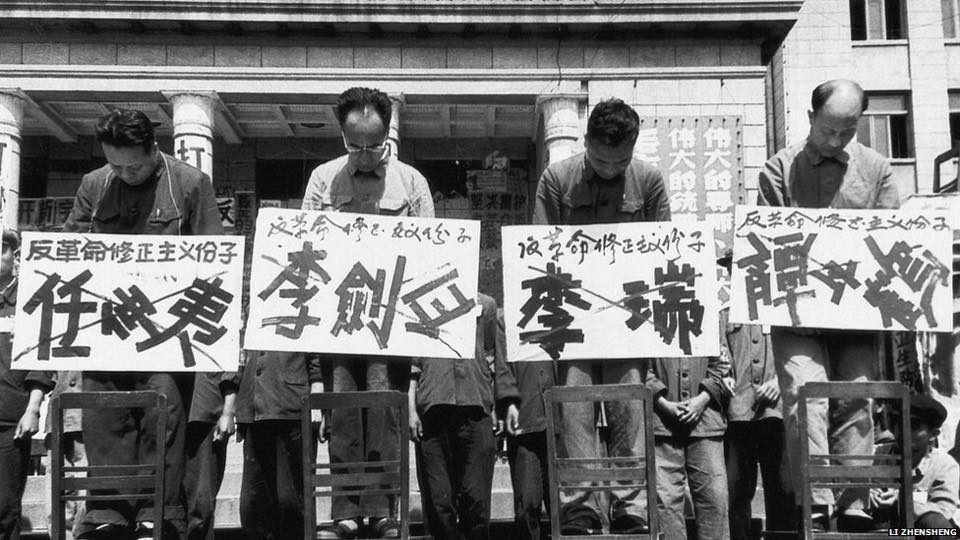 打
伟大的导
伟大的统
毛
反革命修正主义份子
任 夷
反革命修正主义份子
李剑白
反革命修正主义份子
李瑞
反革命修正主义份子
譚
LI ZHENSHENG